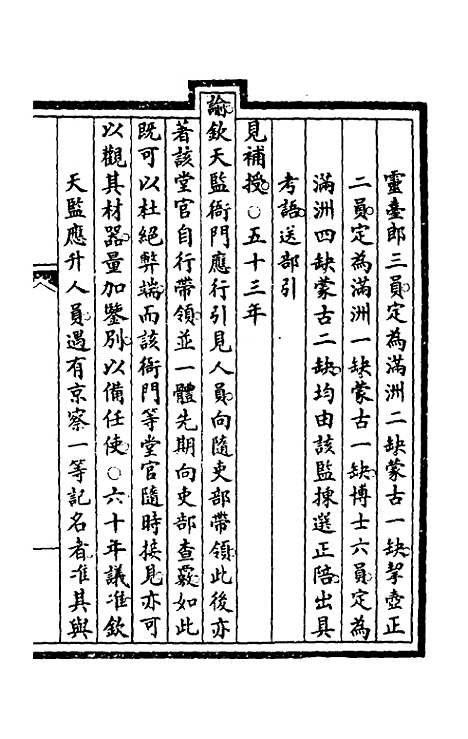 靈臺郎三員定為滿洲二缺蒙古一缺挈壺正
二員定為滿洲一缺蒙古一缺博士六員定為
滿洲四缺蒙古二缺均由該監揀選正陪出具
考語送部引
見補授○五十三年
諭欽天監衙門應行引見人員向隨吏部帶領此後亦
著該堂官自行帶領並一體先期向吏部查覈如此
既可以杜絕弊端而該衙門等堂官隨時接見亦可
以觀其材器量加鑒別以備任使○六十年議准欽
天監應升人員遇有京察一等記名者准其與